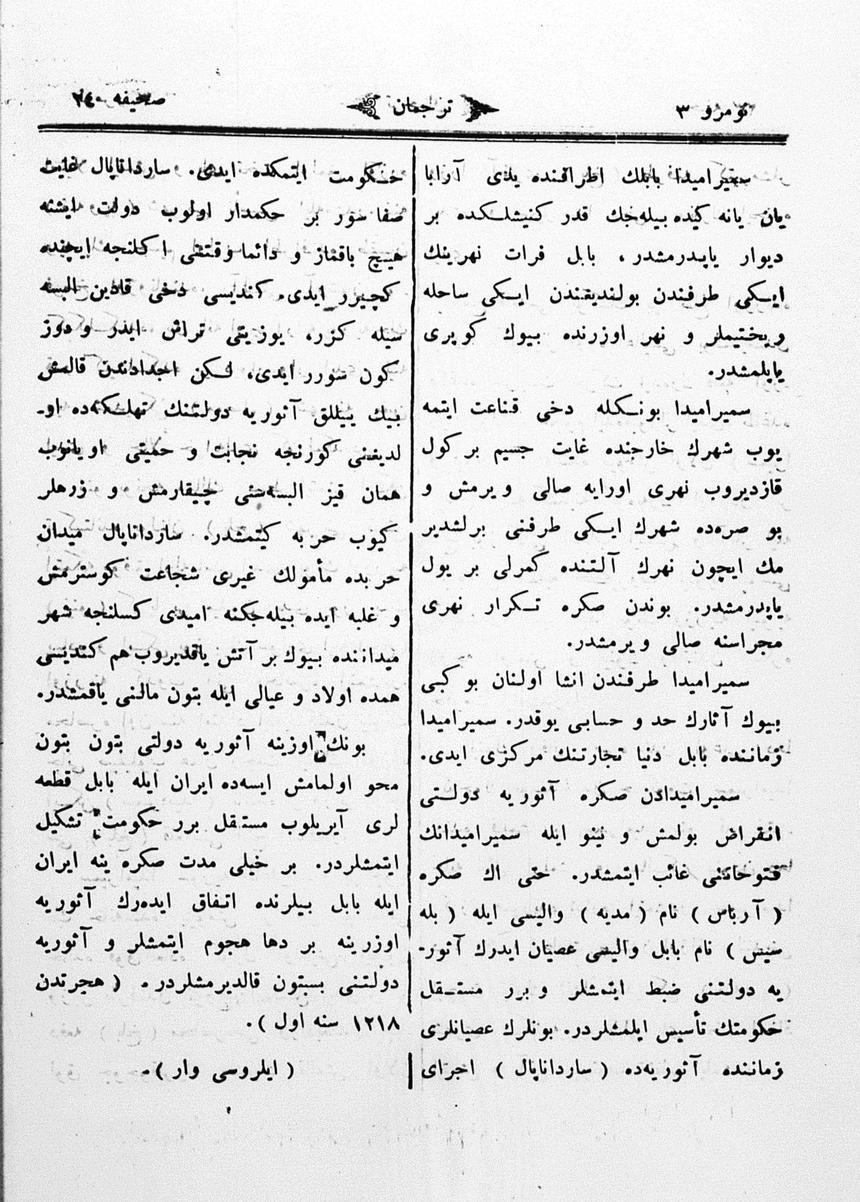 نومرو ۳
ترجمان
صحیفه ۲٤۰
سمیرامیدا بابلك اطرافنده یدی آرابا
یان یانه كیده بیله‌جك قدر كنیشلكده بر
دیوار یاپدرمشدر، بابل فرات نهرینك
ایكی طرفندن بولندیغندن ایكی ساحله
ریختیملر و نهر اوزرنده بیوك كوپری
یاپلمشدر.
سمیرامیدا بونكله دخی قناعت ایتمه
یوب شهرك خارجنده غایت جسیم بر كول
قازدیروب نهری اورایه صالی ویرمش و
بو صره‌ده شهرك ایكی طرفنی برلشدیر
مك ایچون نهرك آلتنده كمرلی بر یول
یاپدرمشدر. بوندن صكره تكرار نهری
مجراسنه صالی ویرمشدر.
سمیرامیدا طرفندن انشا اولنان بو كبی
بیوك آثارك حد و حسابی یوقدر. سمیرامیدا
زماننده بابل دنیا تجارتنك مركزی ایدی.
سمیرامیدادن صكره آثوریه دولتی
انقراض بولمش و نینو ایله سمیرامیدانك
فتوحاتنی غائب ایتمشدر. حتی اك صكره
( آرباس ) نام ( مدیه ) والیسی ایله ( بله
سیس ) نام بابل والیسی عصیان ایدرك آثور-
یه دولتنی ضبط ایتمشلر و برر مستقل
حكومتك تأسیس ایلمشلردر. بونلرك عصیانلری
زماننده آثوریه‌ده ( ساردانا‌پال ) اجرای
حكومت ایتمكده ایدی. ساردانا‌پال غایت
صفا سور بر حكمدار اولوب دولت ایشنه
هیچ باقماز و دائما وقتنی اكلنجه ایچنده
كچیرر ایدی. كندیسی دخی قادین البسه
سیله كزر، یوزینی تراش ایدر و دوز
كون سورر ایدی، لكن اجدادندن قالمش
بیك ییللق آثوریه دولتنك تهلكه‌ده او-
لدیغنی كورنجه نجابت و حمیتی اویانوب
همان قیز البسه‌سنی چیقارمش و زرهلر
كیوب حربه كیتمشدر. ساردانا‌پال میدان
حربده مأمولك غیری شجاعت كوسترمش
و غلبه ایده بیله‌جكنه امیدی كسلنجه شهر
میداننده بیوك بر آتش یاقدیروب هم كندیسی
همده اولاد و عیالی ایله بتون مالنی یاقمشدر.
بونك اوزینه آثوریه دولتی بتون بتون
محو اولمامش ایسه‌ده ایران ایله بابل قطعه
لری آیریلوب مستقل برر حكومت تشكیل
ایتمشلردر. بر خیلی مدت صكره ینه ایران
ایله بابل بیلرنده اتفاق ایده‌رك آثوریه
اوزرینه بر دها هجوم ایتمشلر و آثوریه
دولتنی بسبتون قالدیرمشلردر. ( هجرتدن
۱۲۱۸ سنه اول ).
( ایلروسی وار ).